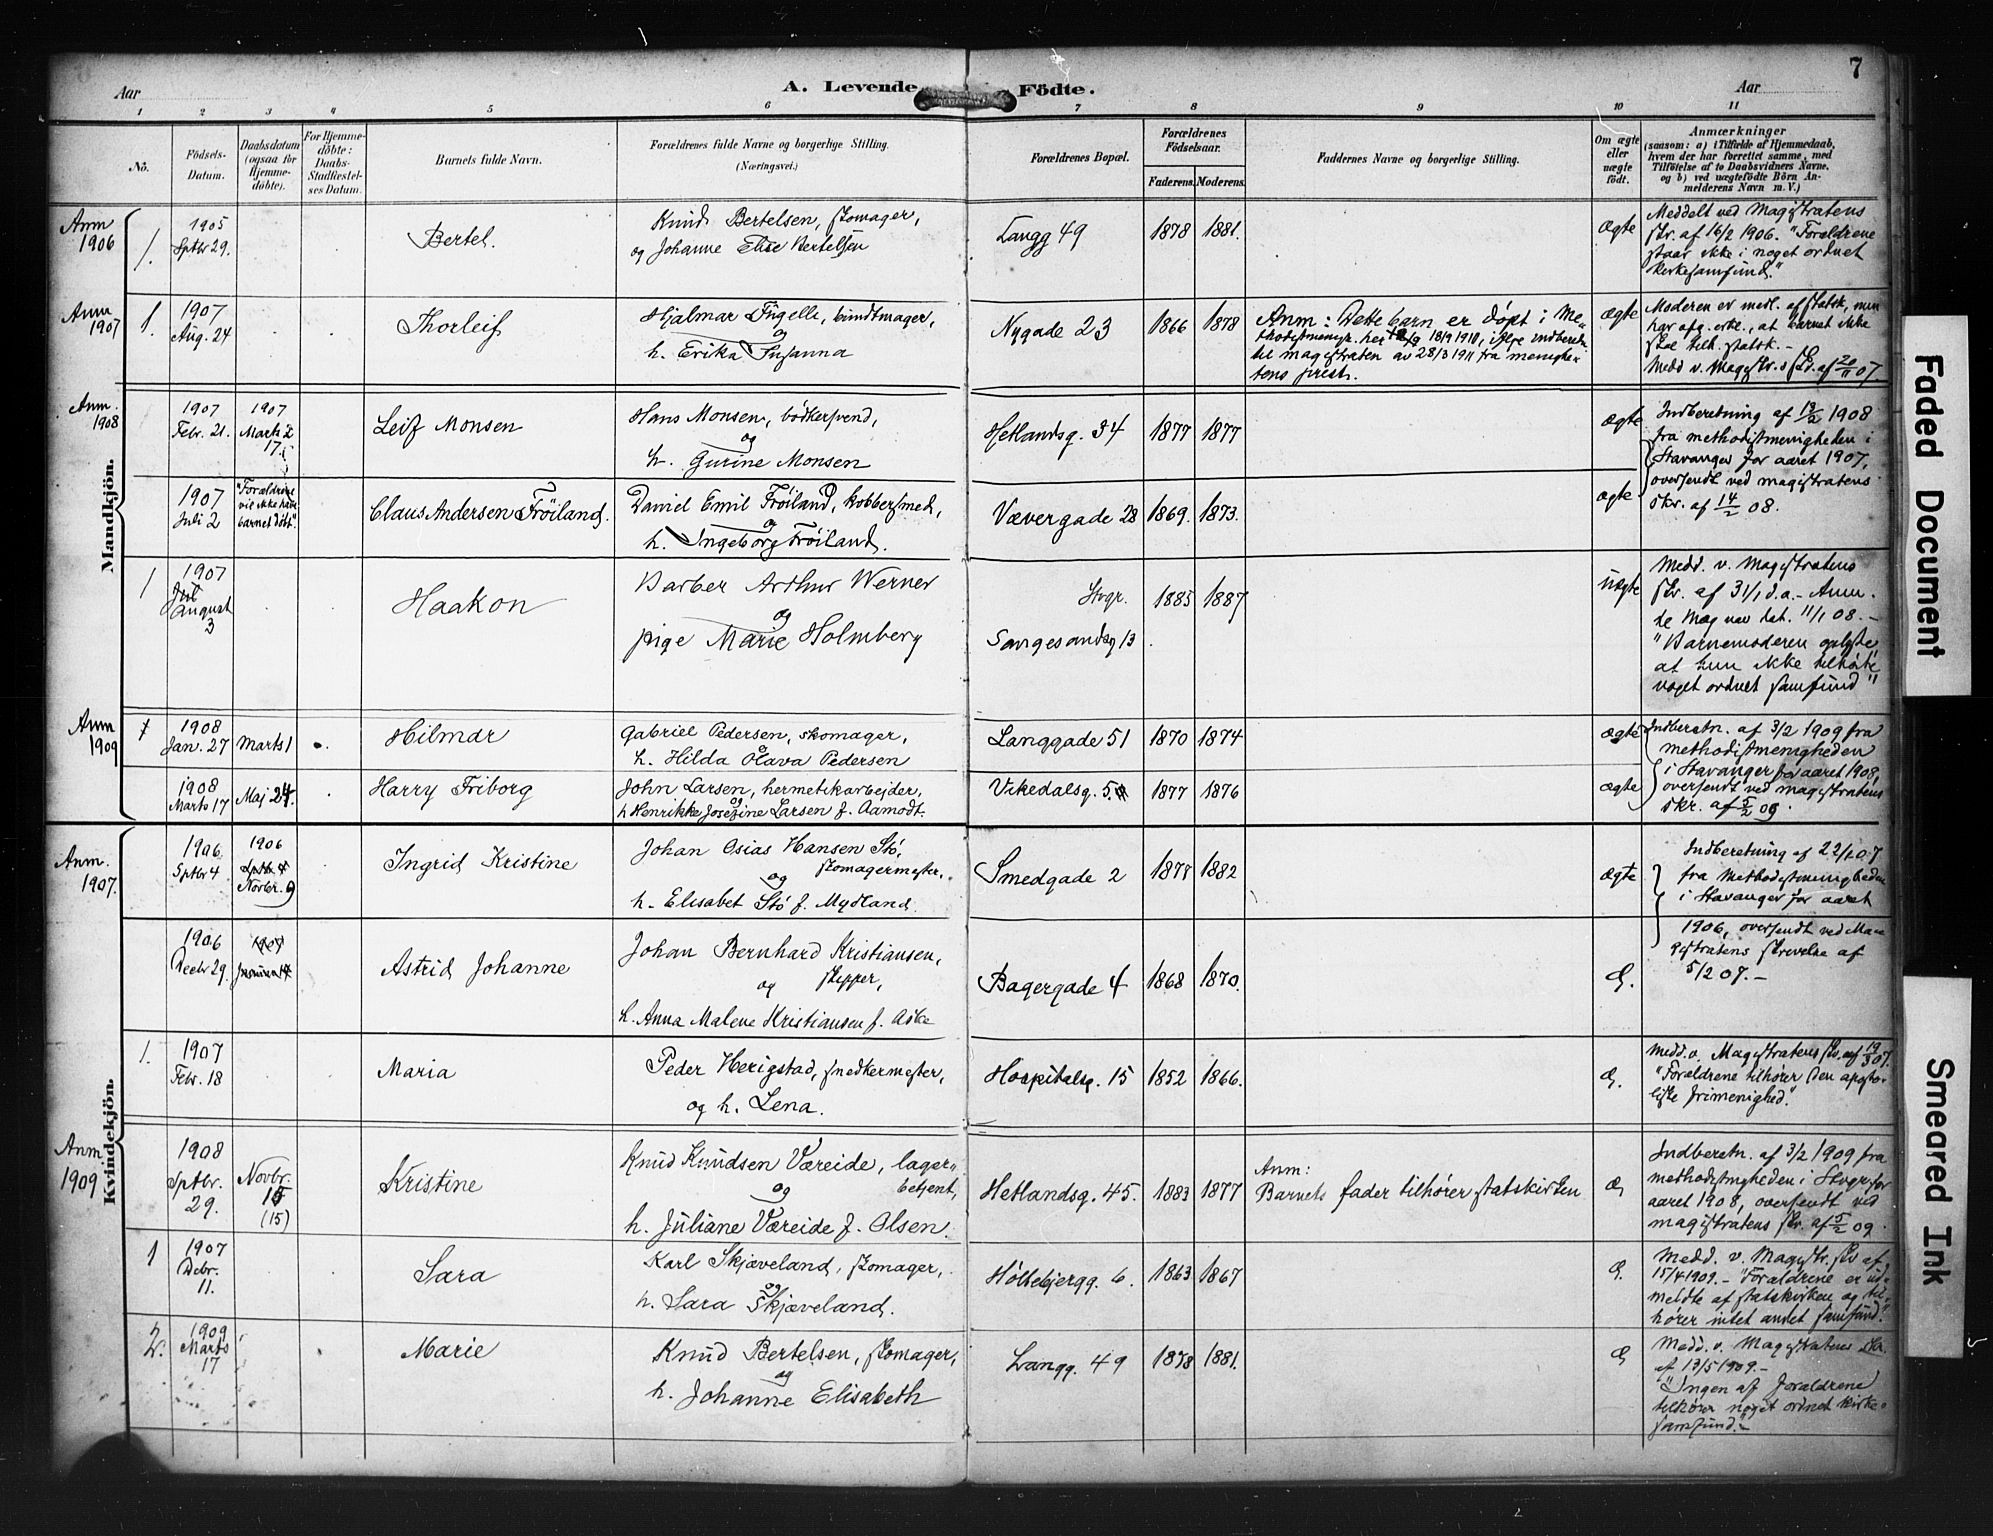 7
Aar
A. Levende Födte.
Aar
1 2 3 4 5 6 7 8 9 10 11
No.
Födsels-
Datum.
Daabsdatum
(ogsaa for
Hjemme-
döbte).
For Hjemme-
döbte:
Daabs-
Stadfæstel-
ses Datum.
Barnets fulde Navn.
Forældrenes fulde Navne og borgerlige Stilling.
(Næringsvei.)
Forældrenes Bopæl.
Forældrenes
Födselsaar.
Faderens. Moderens.
Faddernes Navne og borgerlige Stilling.
Om ægte
eller
uægte
födt.
Anmærkninger
(saasom: a) i Tilfælde af Hjemmedaab,
hvem der har forrettet samme, med
Tilföielse af to Daabsvidners Navne,
og b) ved uægtefödte Börn An-
melderens Navn m. V.)
Mandkjön.
Anm
1906
1.
1905
Sptbr 29.
Bertel.
Knud Bertelsen, skomager,
og Johanne Elise Bertelsen
Langg 49
1878
1881.
ægte
Meddelt ved Magistratens
skr. af 16/2 1906. "Forældrene
staar ikke i noget ordnet
kirkesamfund."
Anm
1907
1.
1907
Aug. 24
Thorleif
Hjalmar Ingelli, bundtmager,
og
h. Erika Susanna
Nygade 23
1866
1878
Anm: Dette barn er døpt i Me=
thodistmenigh. her 18/9 1910, ifølge indberetn
til magistraten av 28/3 1911 fra menighe=
tens prest.
ægte
Moderen er medl. af statsk, men
har afg. erkl., at barnet ikke
skal tilh. statsk. -
Medd v. Magistr.s skr. af 20/11 07.
Anm.
1908
1907
Febr. 21.
1907
Marts
17.
Leif Monsen
Hans Monsen, bödkersvend,
og
h. Gurine Monsen
Hetlandsg. 34
1877
1877
ægte
Indberetning af 13/2 1908
fra methodistmenigheden i
Stavanger for aaret 1907,
oversendt ved magistratens
skr. af 14/2 08.
1907
Juli 2
"Forældrene
vil ikke have
barnet döbt".
Claus Andersen Fröiland.
Daniel Emil Fröiland, kobbersmed,
og
h. Ingeborg Fröiland.
Vævergade 28
1869.
1873.
ægte
1
1907
Jul
August
3
Haakon
Barber Arthur Werner
og
pige Marie Holmberg
Stvgr.
Sangesandsg 13
1885
1887
uægte
Medd. v. Magistratens
skr. af 31/1 d.a. - Anm.
te Mag var dat. 11/1 08. -
"Barnemoderen oplyste,
at hun ikke tilhörte
noget ordnet samfund"
Anm
1909
1908
Jan. 27
Marts 1
Hilmar
Gabriel Pedersen, skomager,
og
h. Hilda Olava Pedersen
Langgade 51
1870
1874
ægte
Indberetn. af 3/2 1909 fra
methodistmenigheden
i Stavanger for aaret 1908,
oversendt ved magistratens
skr. af 5/2 09.
1908
Marts 17
Maj 24.
Harry Friborg
John Larsen, hermetikarbejder,
og
h Henrikke Josefine Larsen f. Aamodt.
Vikedalsg. 5.
1877
1876
ægte
Kvindekjön.
Anm.
1907.
1906
Sptbr 4
1906
Sptbr 4
Novbr. 9
Ingrid Kristine
Johan Osias Hansen Stö,
skomagermester.
og
h. Elisabet Stö f. Mydland.
Smedgade 2
1878
1882
ægte
Indberetning af 22/1 07
fra Methodistmenigheden
i Stavanger for aaret
1906, oversendt ved Ma=
gistratens skrivelse af
5/2 07. -
1906
Decbr 29.
1907
Januar 14
Astrid Johanne
Johan Bernhard Kristiansen,
og skipper,
h. Anna Malene Kristiansen f. Aske
Bagergade 4
1868
1870.
Æ.
1.
1907
Febr. 18
Maria
Peder Herigstad, snedkermester,
og h. Lena.
Hospitalsg. 15
1852
1866.
Æ.
Medd. v. Magistratens skr. af 19/3 07.
"Forældrene tilhører Den aposto=
liske frimenighed."
Anm.
1909
1908
Sptbr.
29.
Novbr.
15
(15)
Kristine
Knud Knudsen Væreide, lager=
betjent,
og
h. Juliane Væreide, f. Olsen.
Hetlandsg. 45.
1883
1877
Anm:
Barnets fader tilhører statskirken
Æ
Indberetn. af 3/2 1909 fra
methodistmigheden i Stvgr. for
aaret 1908, oversendt ved
magistratens skr. af 5/2 09.
1
1907
Debr.
11.
Sara
Karl Skjæveland, skomager,
og
h. Sara Skjæveland.
Höllebjergg. 6.
1863
1867
Æ.
Medd. v. Magistr. skr af
15/4 1909. - "Forældrene er ud=
meldte af statskirken og til=
hører intet andet samfund."
2.
1909
Marts
17
Marie
Knud Bertelsen, skomager,
og
h. Johanne Elisabeth
Langg. 49
1878
1881.
Æ
Medd. v. Magistratens skr.
af 13/5 1909. -
"Ingen af Forældrene
tilhører noget ordnet kirke=
samfund." -
Faded Document
Smeared Ink